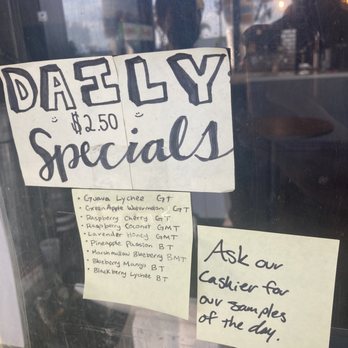 DAILY
$2.50
Specials
• Guava Lychee GT
• Green Apple Watermelon GT
• Raspberry Cherry GT
• Raspberry Coconut GMT
• Lavender Honey GMT
• Pineapple Passion BT
• Marshmallow Blueberry BMT
• Blueberry Mango BT
• Blackberry Lychee BT
Ask our
Cashier for
our samples
of the day.